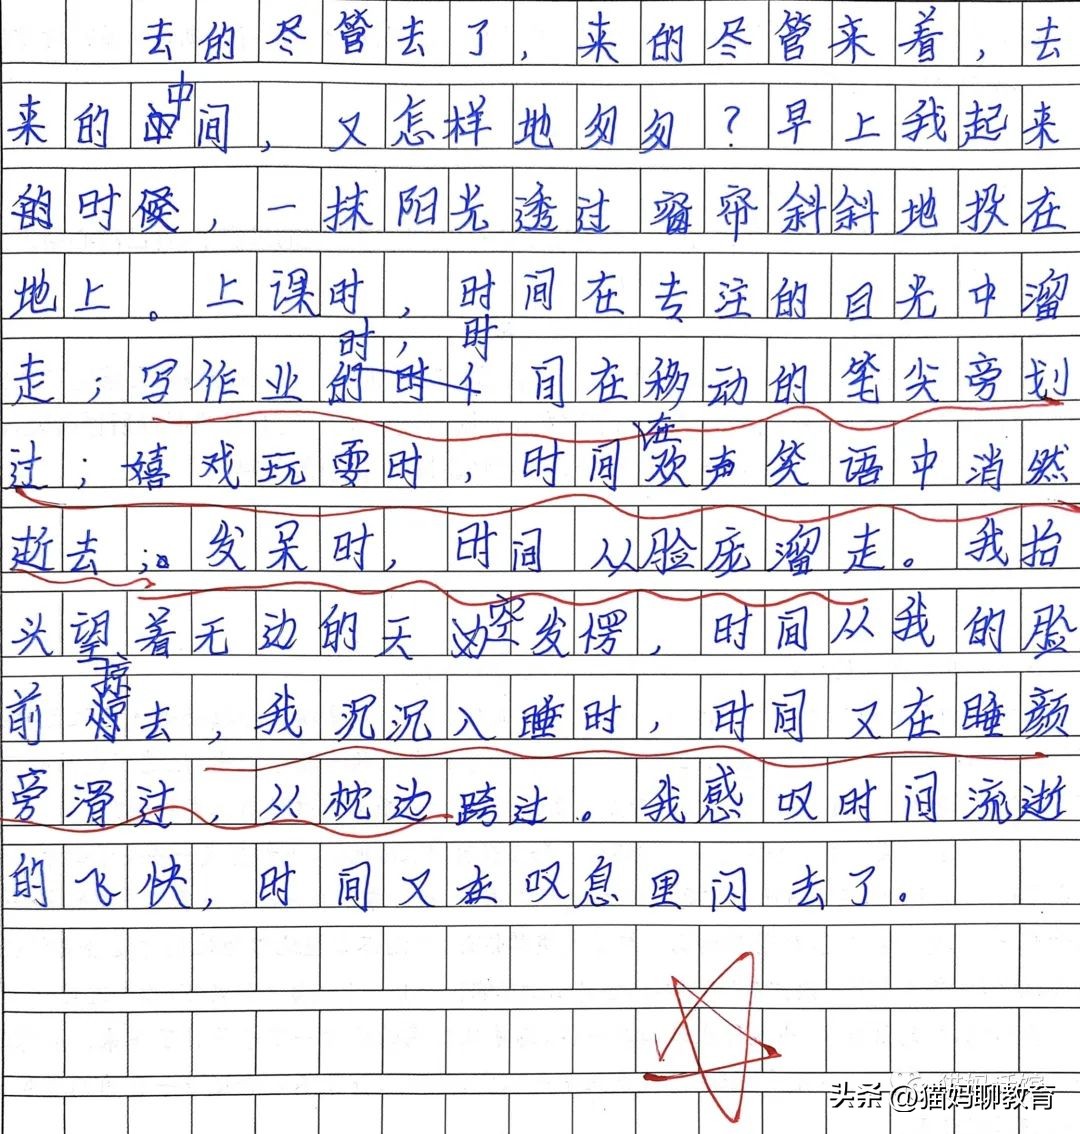 去的尽管去了，来的尽管来着，去
来的中间，又怎样地匆匆？早上我起来
的时候，一抹阳光透过窗帘斜斜地投在
地上。上课时，时间在专注的目光中溜
走；写作业时，时间在移动的笔尖旁划
过；嬉戏玩耍时，时间在欢声笑语中消然
逝去；。发呆时，时间从脸庞溜走。我抬
头望着无边的天空发愣，时间从我的脸
前掠去，我沉沉入睡时，时间又在睡颜
旁滑过，从枕边跨过。我感叹时间流逝
的飞快，时间又在叹息里闪去了。
头条 @猫妈聊教育